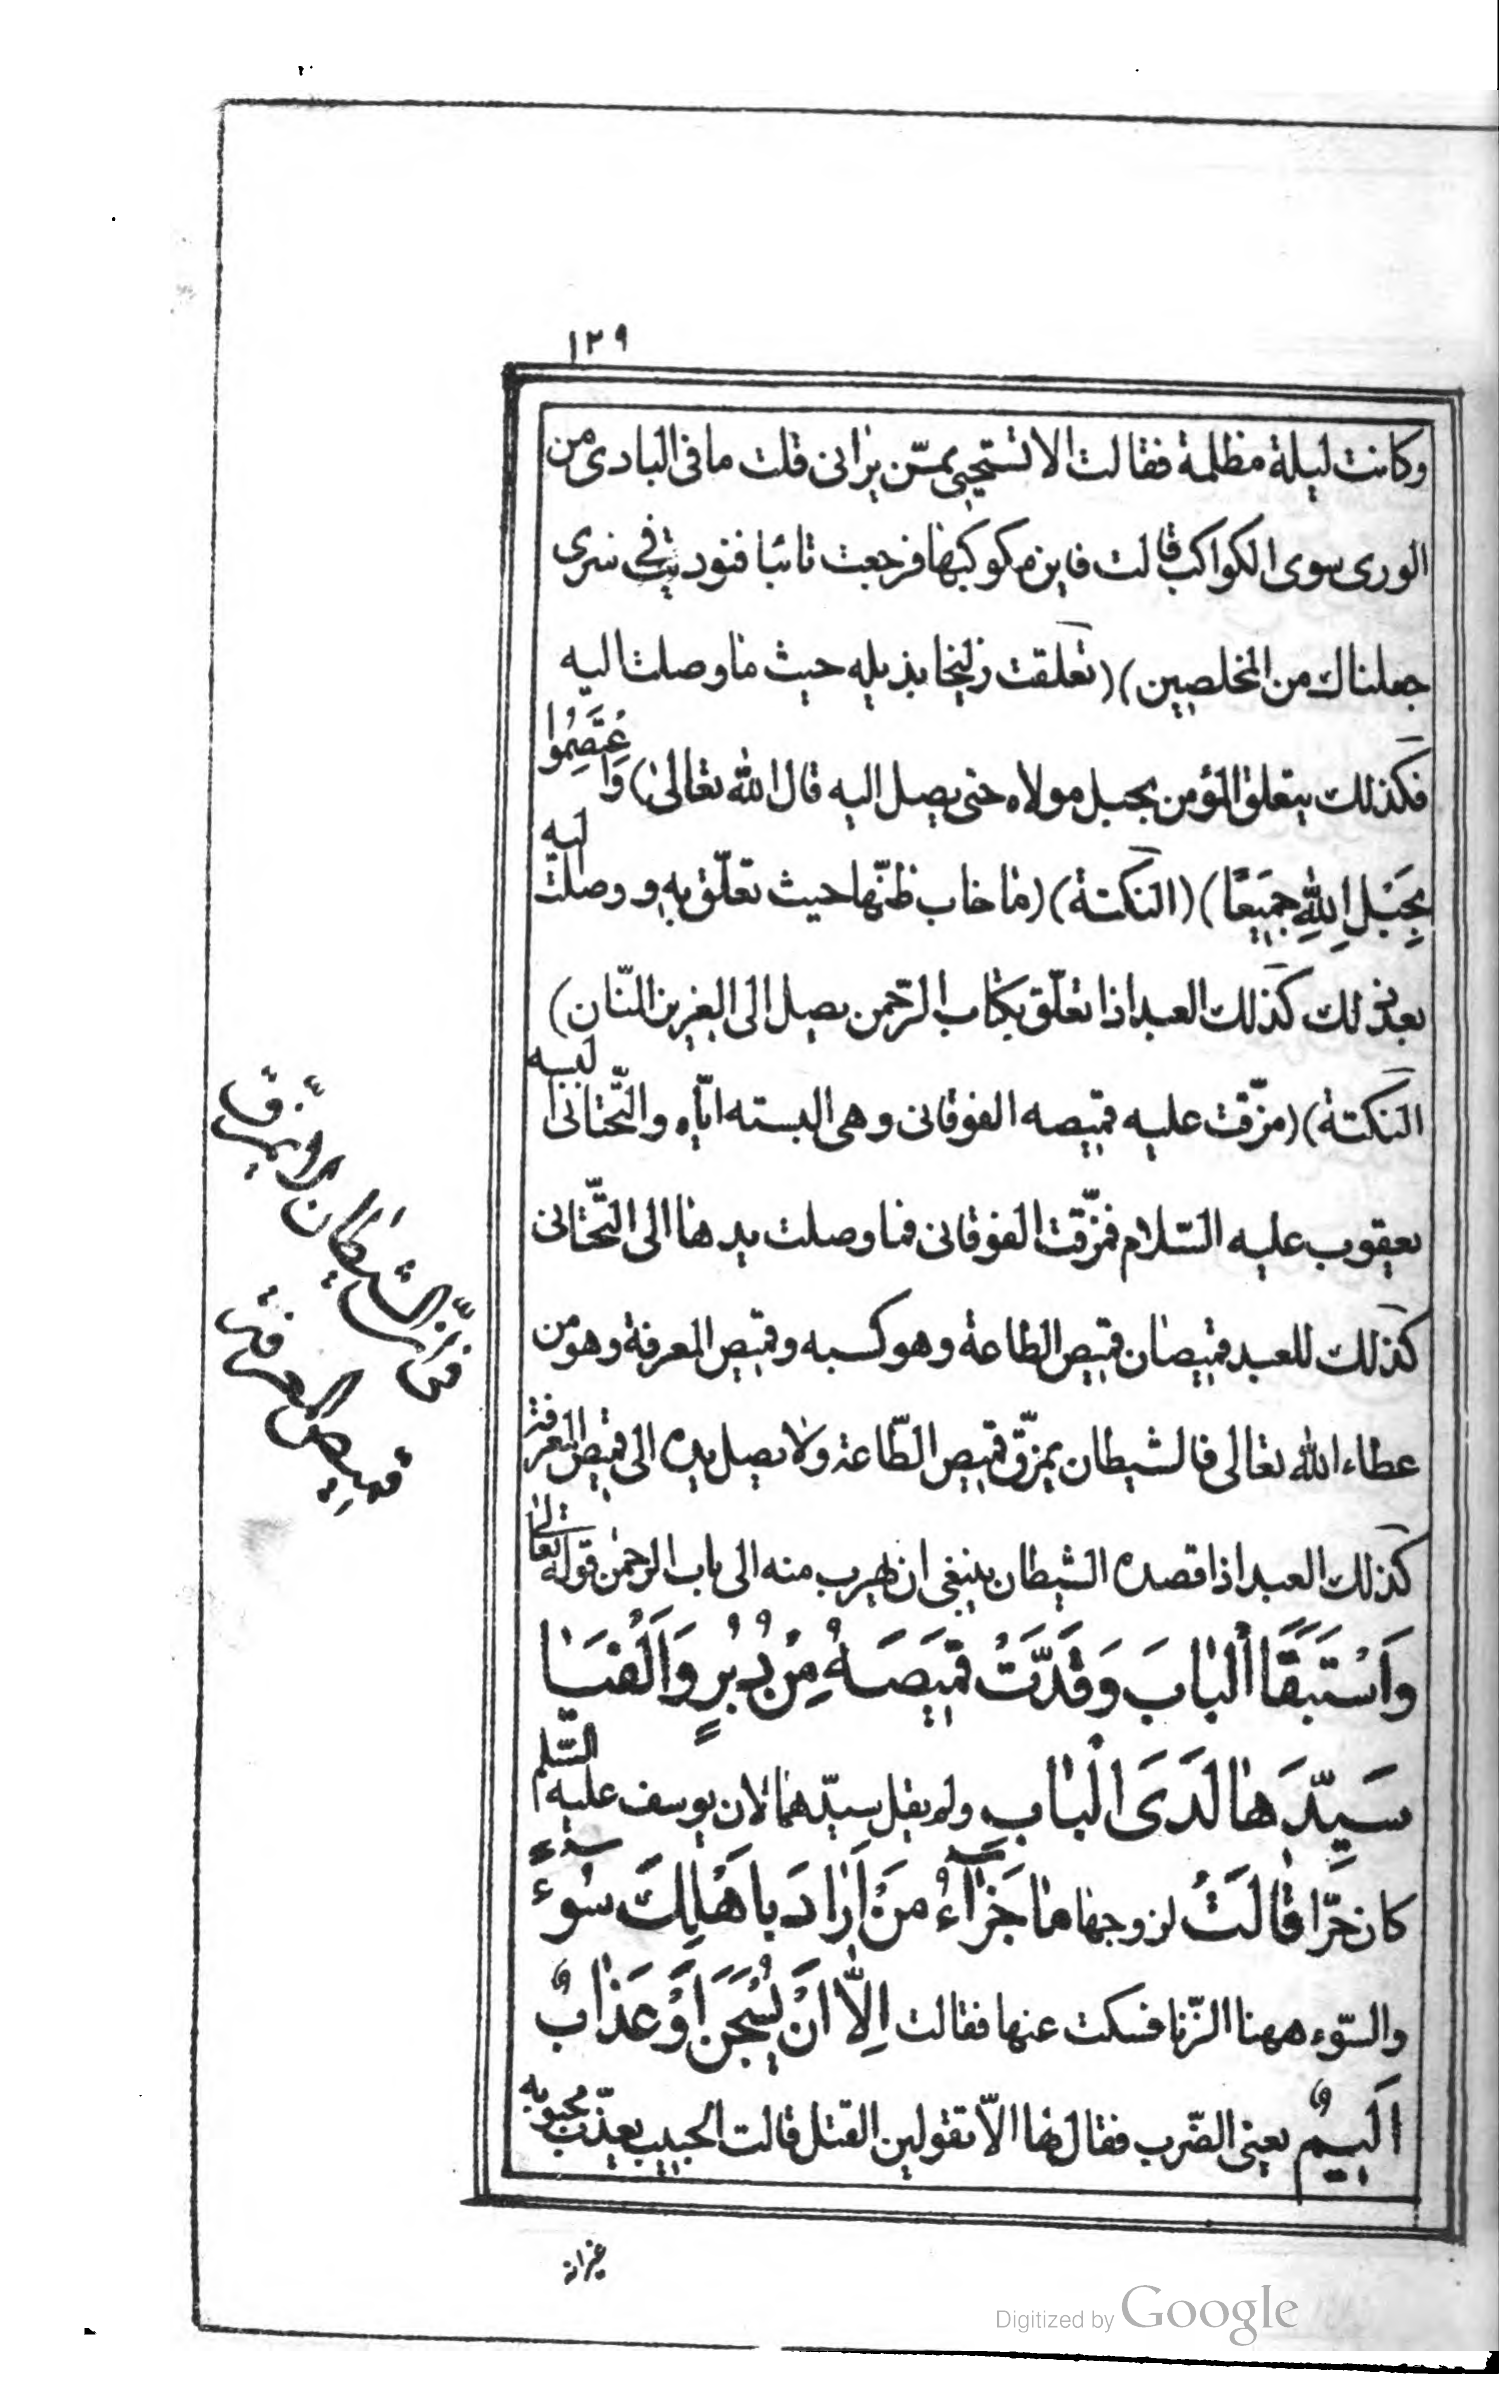 ١٢٩
وكانت ليلة مظلمة فقالت الا تستحيى ممّن يرانى قلت ما فى البادى من
الورى سوى الكواكب قالت فاين مكوكبها فرجعت تائبا فنوديت فى سرى
جعلناك من المخلصين) (تعلقت زليخا بذيله حيث ما وصلت اليه
فكذلك يتعلق المؤمن بحبل مولاه حتى يصل اليه قال الله تعالى) وَاعْتَصِمُوا
بِحَبْلِ اللهِ جَمِيعًا) (النكتة) (ما خاب ظنّها حيث تعلّق به ووصلت اليه
بعد ذلك كذلك العبد اذا تعلّق بكتاب الرّحمن يصل الى العزيز المنّان)
النكتة) (مزّقت عليه قميصه الفوقانى وهى البسته ايّاه والتّحتانى البسه
يعقوب عليه السّلام فمزّقت الفوقانى فما وصلت يدها الى التّحتانى
كذلك للعبد قميصان قميص الطاعة وهو كسبه وقميص المعرفة وهو من
عطاء الله تعالى فالشيطان يمزّق قميص الطّاعة ولا يصل يده الى قميص المعرفة
كذلك العبد اذا قصده الشيطان ينبغى ان يهرب منه الى باب الرحمن قوله تعالى
وَاسْتَبَقَا الْبَابَ وَقَدَّتْ قَمِيصَهُ مِنْ دُبُرٍ وَاَلْفَيَا
سَيِّدَهَا لَدَى الْبَابِ ولم يقل سيّدهما لان يوسف عليه السّلم
كان حرّا قَالَتْ لزوجها مَا جَزَآءُ مَنْ اَرَادَ بِاَهْلِكَ سُوءً
والسّوء ههنا الزّنا فسكت عنها فقالت اِلّآ اَنْ يُسْجَنَ اَوْ عَذَابٌ
اَلِيمٌ يعنى الضّرب فقال لها الّا تقولين القتل قالت الحبيب يعذّب محبوبه
غيرانه
فرّ من الشيطان لئلا يمزق
قميص المعرفة
Digitized by Google